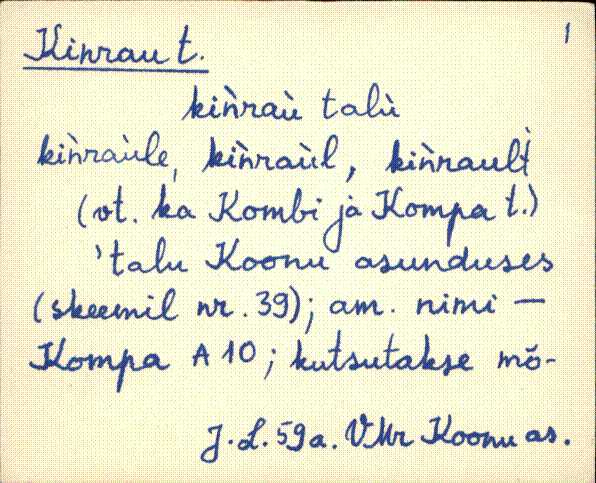 Kinrau t. 1
kiǹraù talù
kiǹraùle, kiǹraùl, kiǹrault̀
(vt. ka Kombi ja Kompa t.)
'talu Koonu asunduses
(skeemil nr. 39); am. nimi —
Kompa A 10; kutsutakse mõ-
J. L. 59 a. VMr Koonu as.